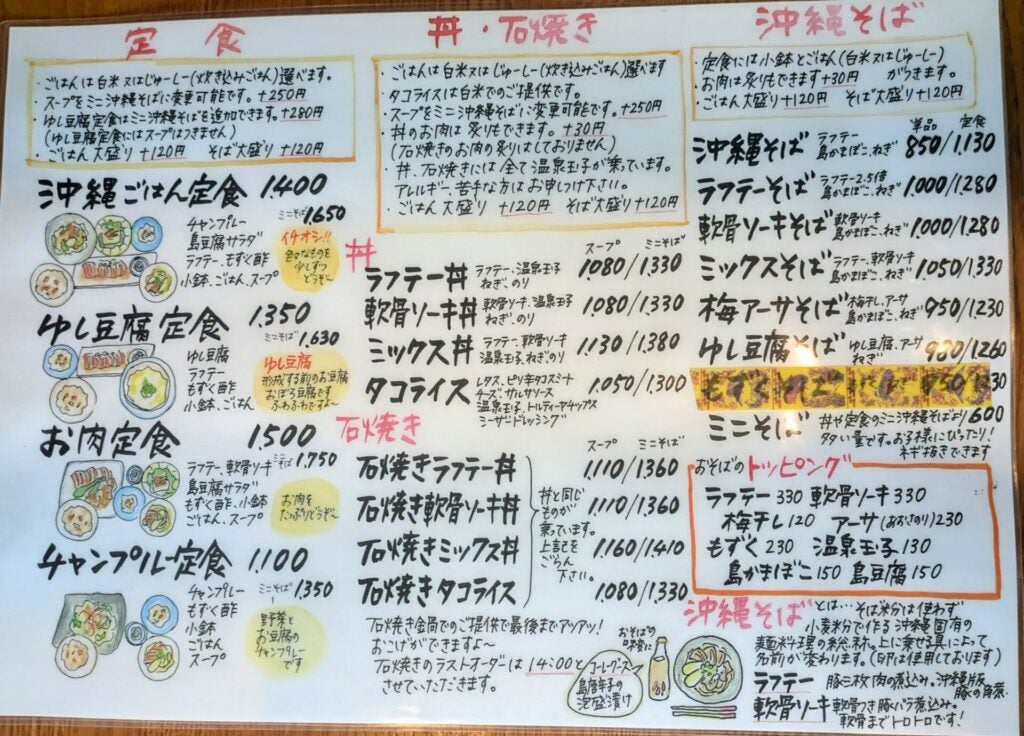 定食
・ごはんは白米又はじゅーしー(炊き込みごはん)選べます。
・スープをミニ沖縄そばに変更可能です。+250円
・ゆし豆腐定食はミニ沖縄そばを追加できます。+280円
(ゆし豆腐定食にはスープはつきません)
・ごはん大盛り+120円 そば大盛り+120円
沖縄ごはん定食 1.400
ミニそば 1.650
チャンプルー
島豆腐サラダ
ラフテー、もずく酢
小鉢、ごはん、スープ
イチオシ!!
色々なものを
少しずつ
どうぞ〜
ゆし豆腐定食 1.350
ミニそば 1.630
ゆし豆腐
ラフテー
もずく酢
小鉢、ごはん
ゆし豆腐
形成する前のお豆腐
おぼろ豆腐です
ふわふわですよ〜
お肉定食 1.500
ラフテー、軟骨ソーキ ミニそば 1.750
島豆腐サラダ
もずく酢、小鉢
ごはん、スープ
お肉を
たっぷりどうぞ〜
チャンプルー定食 1.100
ミニそば 1.350
チャンプルー
もずく酢
小鉢
ごはん
スープ
野菜と
お豆腐の
チャンプルー
です
丼・石焼き
・ごはんは白米又はじゅーしー(炊き込みごはん)選べます
・タコライスは白米でのご提供です。
・スープをミニ沖縄そばに変更可能です。+250円
・丼のお肉は炙りもできます。+30円
(石焼きのお肉の炙りはしておりません)
・丼、石焼きには全て温泉玉子が乗っています。
アレルギー、苦手な方はお申しつけ下さい。
・ごはん大盛り+120円 そば大盛り+120円
丼
スープ ミニそば
ラフテー丼 ラフテー、温泉玉子 ねぎ、のり 1.080/1.330
軟骨ソーキ丼 軟骨ソーキ、温泉玉子 ねぎ、のり 1.080/1.330
ミックス丼 ラフテー、軟骨ソーキ 温泉玉子、ねぎ、のり 1.130/1.380
タコライス レタス、ピリ辛タコスミート チーズ、サルサソース 温泉玉子、トルティーアチップス シーザードレッシング 1.050/1.300
石焼き
スープ ミニそば
石焼きラフテー丼 1.110/1.360
石焼き軟骨ソーキ丼 1.110/1.360
石焼きミックス丼 1.160/1.410
石焼きタコライス 1.080/1.330
丼と同じ
ものが
乗っています。
上記を
ごらん
下さい。
石焼き釜局でのご提供で最後までアツアツ!
おこげができますよ〜
石焼きのラストオーダーは14:00と
させていただきます。
おそばの
味変に
コーレーグース
島唐辛子の
泡盛漬け
沖縄そば
・定食には小鉢とごはん(白米又はじゅーしー)
がつきます。
・お肉は炙りもできます+30円
・ごはん大盛り+120円 そば大盛り+120円
単品 定食
沖縄そば ラフテー 島かまぼこ、ねぎ 850/1.130
ラフテーそば ラフテー2.5倍 島かまぼこ、ねぎ 1.000/1.280
軟骨ソーキそば 軟骨ソーキ 島かまぼこ、ねぎ 1.000/1.280
ミックスそば ラフテー、軟骨ソーキ 島かまぼこ、ねぎ 1.050/1.330
梅アーサそば 梅干し、アーサ 島かまぼこ、ねぎ 950/1.230
ゆし豆腐そば ゆし豆腐、アーサ ねぎ 980/1260
もずくそば
ミニそば 丼や定食のミニ沖縄そばより 600
多い量です。お子様にぴったり!
ネギ抜きできます
おそばのトッピング
ラフテー 330 軟骨ソーキ 330
梅干し 120 アーサ(あおさのり)230
もずく 230 温泉玉子 130
島かまぼこ 150 島豆腐 150
沖縄そばとは…そば粉は使わず
小麦粉で作る沖縄固有の
麺料理の総称。上に乗せる具によって
名前が変わります。(卵は使用しております)
ラフテー 豚三枚肉の煮込み。沖縄版
豚の角煮
軟骨ソーキ 軟骨つき豚バラ煮込み。
軟骨までトロトロです!